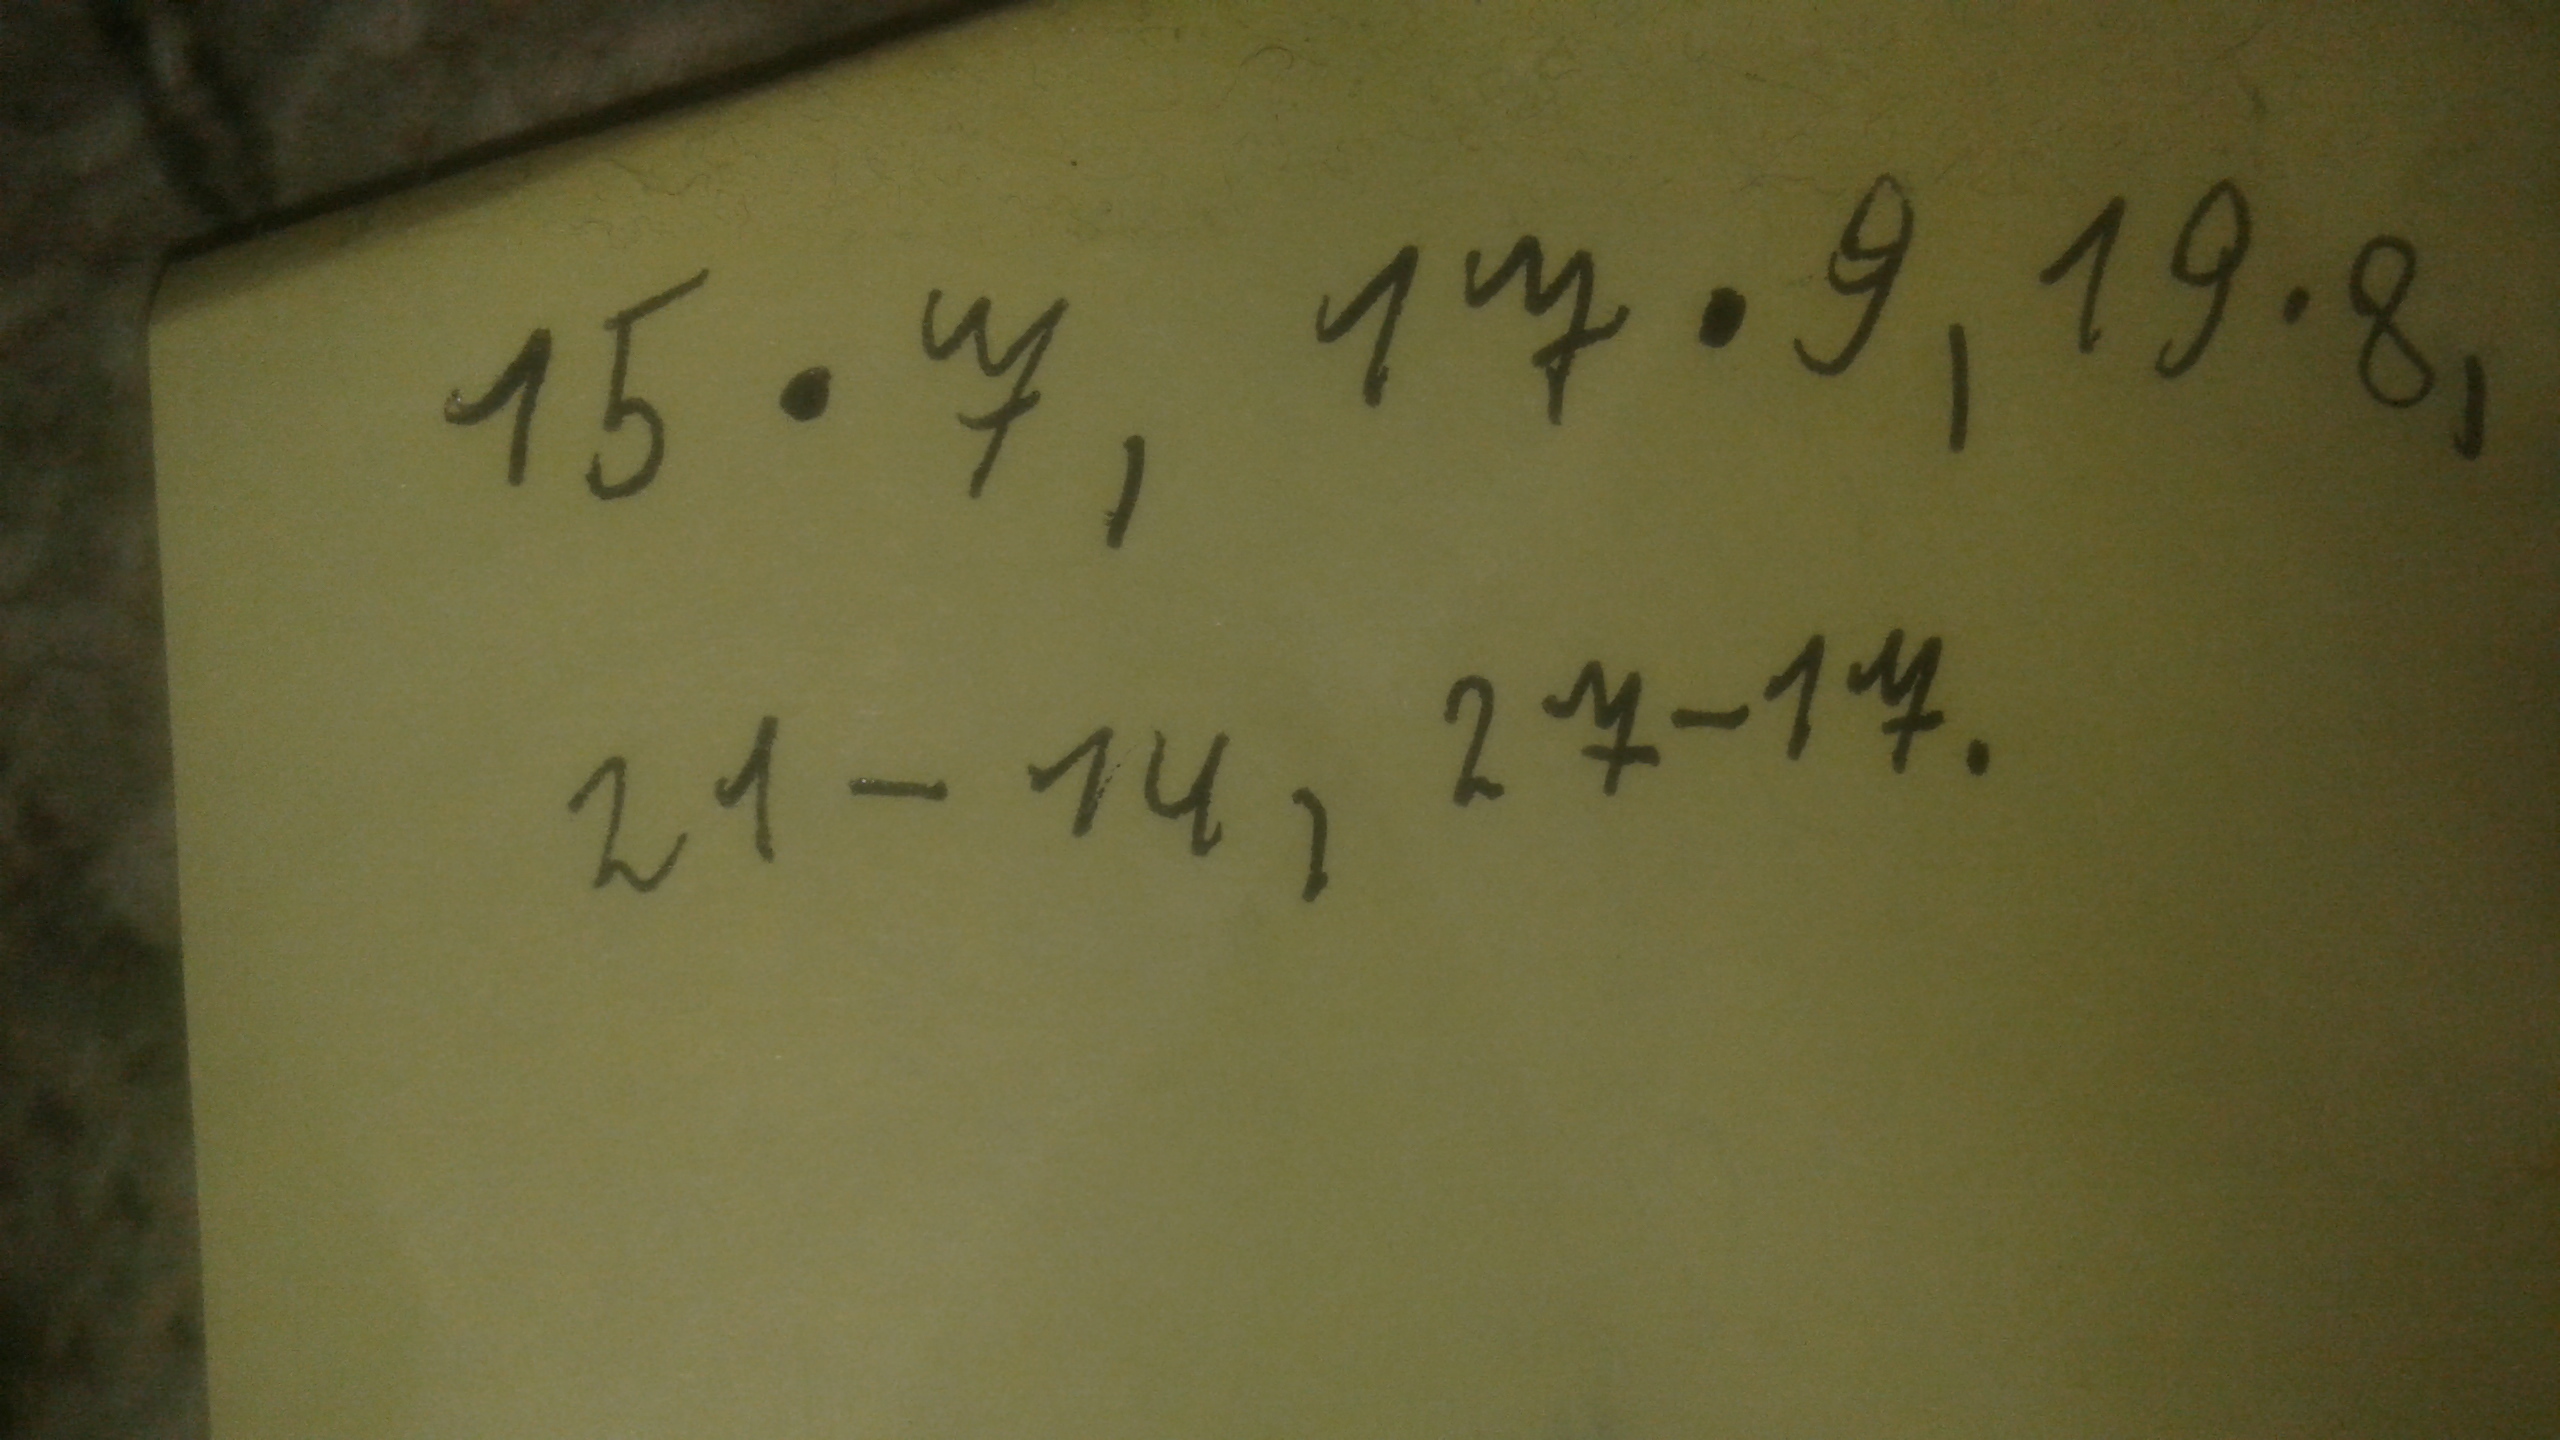 15 • 7, 17 • 9, 19 • 8,
21 - 14, 27 - 17.